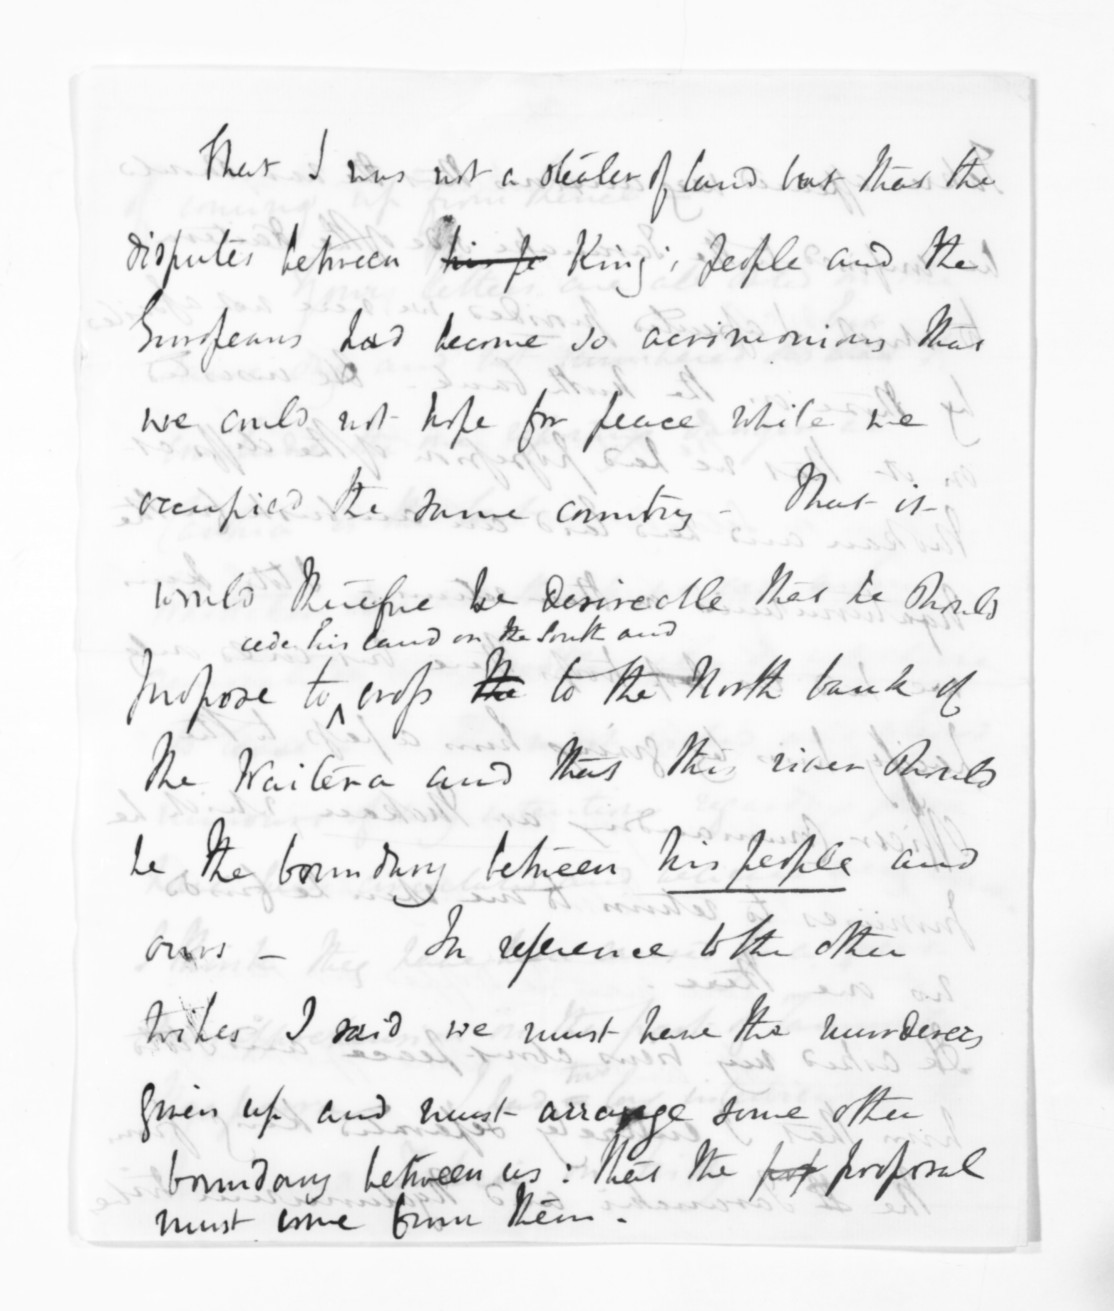 That I was not a stealer of land but that the
disputes between his pe King's people and the
Europeans had become so acrimonious that
we could not hope for peace while we
occupied the same country - That it
would therefore be desireable that he should
cede his land on the South and
propose to cross the to the North bank of
the Waitera and that this river should
be the boundary between his people and
ours - In reference to the other
tribes I said we must have the murderers
given up and must arrange some other
boundary between us : that the prop proposal
must come from them.